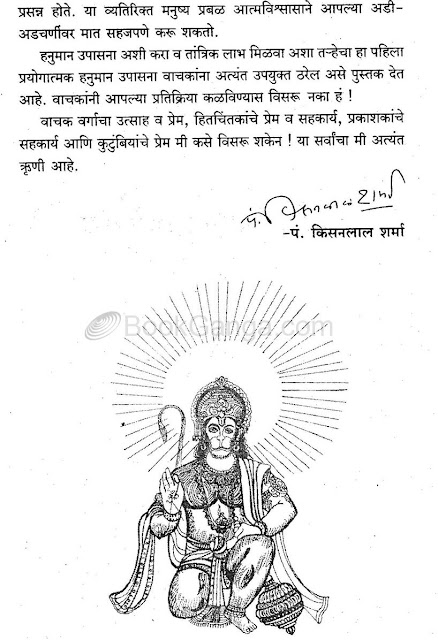 प्रसन्न होते. या व्यतिरिक्त मनुष्य प्रबळ आत्मविश्वासाने आपल्या अडी-
अडचणींवर मात सहजपणे करू शकतो.
हनुमान उपासना अशी करा व तांत्रिक लाभ मिळवा अशा तऱ्हेचा हा पहिला
प्रयोगात्मक हनुमान उपासना वाचकांना अत्यंत उपयुक्त ठरेल असे पुस्तक देत
आहे. वाचकांनी आपल्या प्रतिक्रिया कळविण्यास विसरू नका हं !
वाचक वर्गाचा उत्साह व प्रेम, हितचिंतकांचे प्रेम व सहकार्य, प्रकाशकांचे
सहकार्य आणि कुटुंबियांचे प्रेम मी कसे विसरू शकेन ! या सर्वांचा मी अत्यंत
ऋणी आहे.
पं. किसनलाल शर्मा
-पं. किसनलाल शर्मा
BookGanga.com